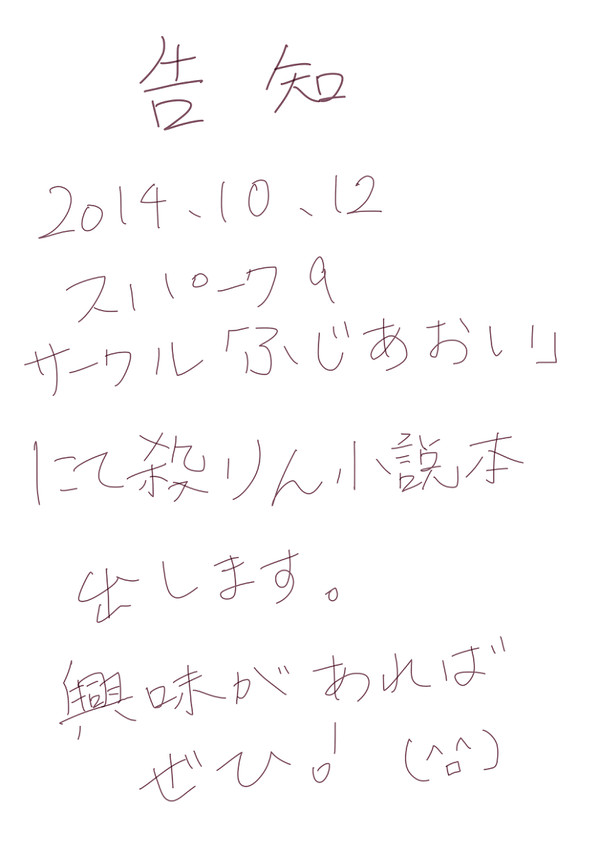 告知
2014、10、12
スパーク9
サークル「ふじあおい」
にて殺りん小説本
出します。
興味があれば
ぜひ! (^ロ^)